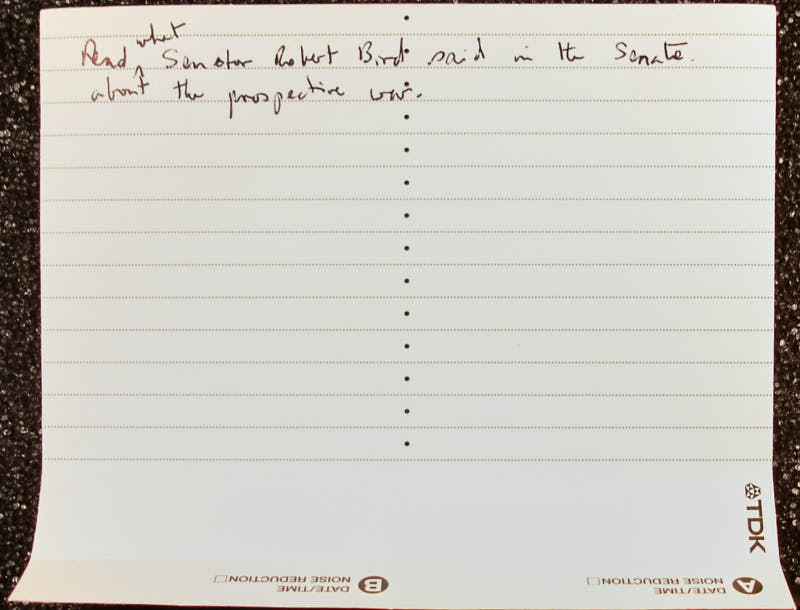 Read what Senator Robert Bird said in the Senate.
about the prospective war.
TDK
A DATE/TIME
NOISE REDUCTION
B DATE/TIME
NOISE REDUCTION